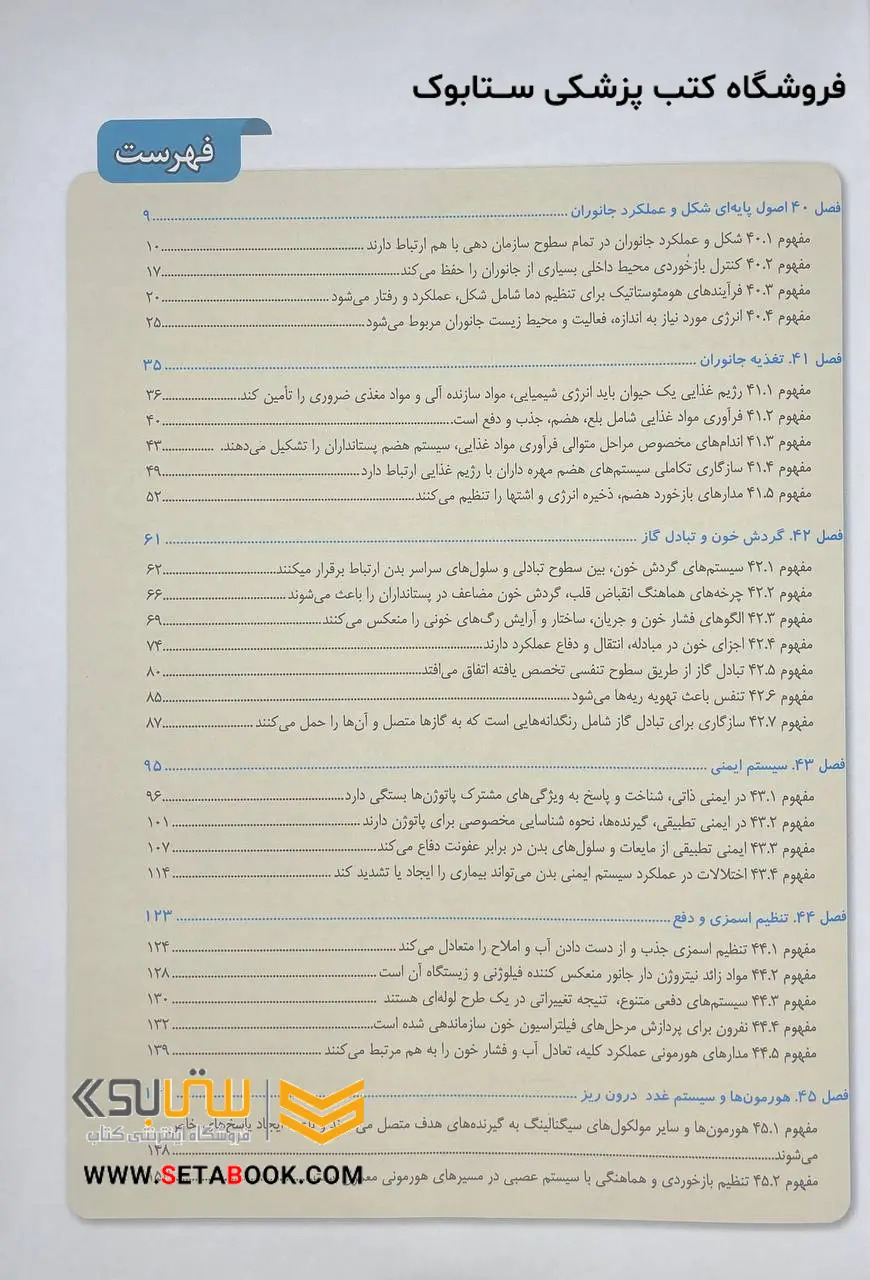 فروشگاه کتب پزشکی ستابوک
فهرست
فصل ۴۰ اصول پایه‌ای شکل و عملکرد جانوران ........ ۹
مفهوم ۴۰.۱ شکل و عملکرد جانوران در تمام سطوح سازمان دهی با هم ارتباط دارند ........ ۱۰
مفهوم ۴۰.۲ کنترل بازخُوردی محیط داخلی بسیاری از جانوران را حفظ می‌کند ........ ۱۷
مفهوم ۴۰.۳ فرآیندهای هومئوستاتیک برای تنظیم دما شامل شکل، عملکرد و رفتار می‌شود ........ ۲۰
مفهوم ۴۰.۴ انرژی مورد نیاز به اندازه، فعالیت و محیط زیست جانوران مربوط می‌شود ........ ۲۵
فصل ۴۱. تغذیه جانوران ........ ۳۵
مفهوم ۴۱.۱ رژیم غذایی یک حیوان باید انرژی شیمیایی، مواد سازنده آلی و مواد مغذی ضروری را تأمین کند ........ ۳۶
مفهوم ۴۱.۲ فرآوری مواد غذایی شامل بلع، هضم، جذب و دفع است ........ ۴۰
مفهوم ۴۱.۳ اندام‌های مخصوص مراحل متوالی فرآوری مواد غذایی، سیستم هضم پستانداران را تشکیل می‌دهند. ........ ۴۳
مفهوم ۴۱.۴ سازگاری تکاملی سیستم‌های هضم مهره داران با رژیم غذایی ارتباط دارد ........ ۴۹
مفهوم ۴۱.۵ مدارهای بازخورد هضم، ذخیره انرژی و اشتها را تنظیم می‌کنند ........ ۵۲
فصل ۴۲. گردش خون و تبادل گاز ........ ۶۱
مفهوم ۴۲.۱ سیستم‌های گردش خون، بین سطوح تبادلی و سلول‌های سراسر بدن ارتباط برقرار میکنند ........ ۶۲
مفهوم ۴۲.۲ چرخه‌های هماهنگ انقباض قلب، گردش خون مضاعف در پستانداران را باعث می‌شوند ........ ۶۶
مفهوم ۴۲.۳ الگوهای فشار خون و جریان، ساختار و آرایش رگ‌های خونی را منعکس می‌کنند ........ ۶۹
مفهوم ۴۲.۴ اجزای خون در مبادله، انتقال و دفاع عملکرد دارند ........ ۷۴
مفهوم ۴۲.۵ تبادل گاز از طریق سطوح تنفسی تخصص یافته اتفاق می‌افتد ........ ۸۰
مفهوم ۴۲.۶ تنفس باعث تهویه ریه‌ها می‌شود ........ ۸۵
مفهوم ۴۲.۷ سازگاری برای تبادل گاز شامل رنگدانه‌هایی است که به گازها متصل و آن‌ها را حمل می‌کنند ........ ۸۷
فصل ۴۳. سیستم ایمنی ........ ۹۵
مفهوم ۴۳.۱ در ایمنی ذاتی، شناخت و پاسخ به ویژگی‌های مشترک پاتوژن‌ها بستگی دارد ........ ۹۶
مفهوم ۴۳.۲ در ایمنی تطبیقی، گیرنده‌ها، نحوه شناسایی مخصوصی برای پاتوژن دارند ........ ۱۰۱
مفهوم ۴۳.۳ ایمنی تطبیقی از مایعات و سلول‌های بدن در برابر عفونت دفاع می‌کند ........ ۱۰۷
مفهوم ۴۳.۴ اختلالات در عملکرد سیستم ایمنی بدن می‌تواند بیماری را ایجاد یا تشدید کند ........ ۱۱۴
فصل ۴۴. تنظیم اسمزی و دفع ........ ۱۲۳
مفهوم ۴۴.۱ تنظیم اسمزی جذب و از دست دادن آب و املاح را متعادل می‌کند ........ ۱۲۴
مفهوم ۴۴.۲ مواد زائد نیتروژن دار جانور منعکس کننده فیلوژنی و زیستگاه آن است ........ ۱۲۸
مفهوم ۴۴.۳ سیستم‌های دفعی متنوع، تنیجه تغییراتی در یک طرح لوله‌ای هستند ........ ۱۳۰
مفهوم ۴۴.۴ نفرون برای پردازش مرحل‌های فیلتراسیون خون سازماندهی شده است ........ ۱۳۲
مفهوم ۴۴.۵ مدارهای هورمونی عملکرد کلیه، تعادل آب و فشار خون را به هم مرتبط می‌کنند ........ ۱۳۹
فصل ۴۵. هورمون‌ها و سیستم غدد درون ریز ........
مفهوم ۴۵.۱ هورمون‌ها و سایر مولکول‌های سیگنالینگ به گیرنده‌های هدف متصل می ایجاد پاسخ‌های
می‌شوند ........ ۱۴۸
مفهوم ۴۵.۲ تنظیم بازخوردی و هماهنگی با سیستم عصبی در مسیرهای هورمونی
ستابوک
فروشگاه اینترنتی کتاب
WWW.SETABOOK.COM